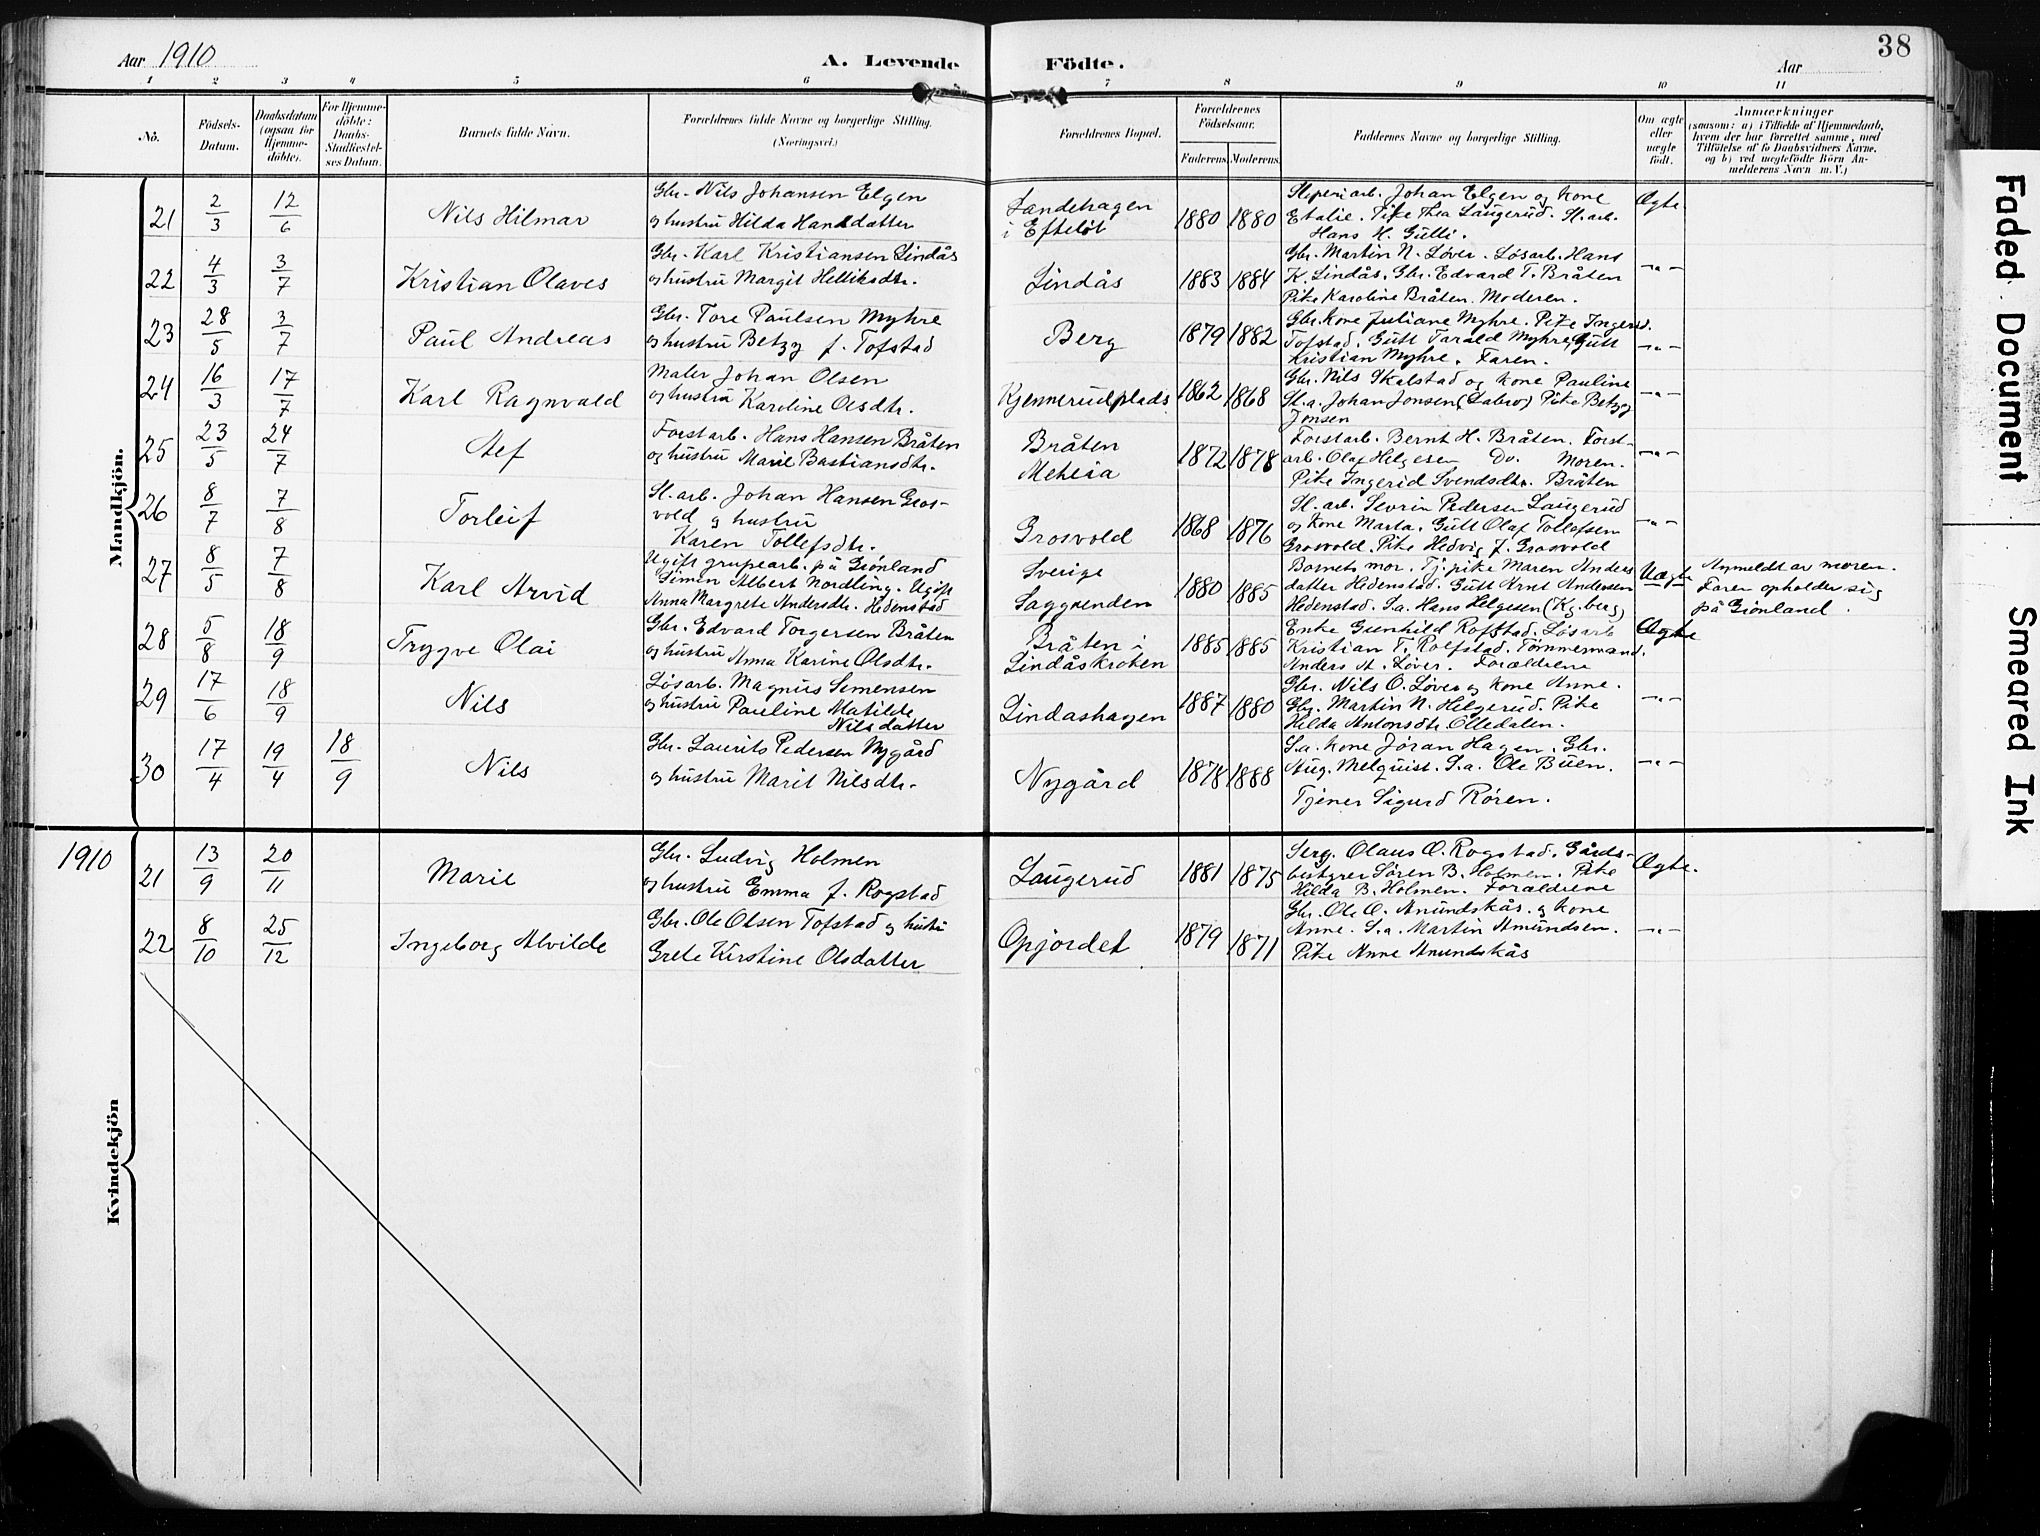 Aar 1910
A. Levende Födte.
Aar
38
1 2 3 4 5 6 7 8 9 10 11
No.
Födsels-Datum.
Daabsdatum (ogsaa for Hjemme-döbte).
For Hjemme-döbte: Daabs-Stadfæstel-ses Datum.
Barnets fulde Navn.
Forældrenes fulde Navne og borgerlige Stilling. (Næringsvei.)
Forældrenes Bopæl.
Forældrenes Födselsaar.
Faderens. Moderens.
Faddernes Navne og borgerlige Stilling.
Om ægte eller uægte födt.
Anmærkninger
(saasom: a) i Tilfælde af Hjemmedaab, hvem der har forrettet samme, med Tilföielse af to Daabsvidners Navne, og b) ved uægtefödte Börn An-melderens Navn m. V.)
Mandkjön.
21 2/3 12/6 Nils Hilmar
Gbr. Nils Johansen Elgen
og hustru Hilda Hansdatter
Landehagen
i Efteløt
1880 1880
Sliperiarb. Johan Elgen og kone
Etalie. Pike Thea Laugerud. Sl. arb.
Hans H. Gulli.
Ægte
22 4/3 3/7 Kristian Olaves
Gbr. Karl Kristiansen Lindås
og hustru Margit Helliksdtr.
Lindås
1883 1884
Gbr. Martin N. Løver. Løsarb. Hans
K. Lindås. Gbr. Edvard T. Bråten
Pike Karoline Bråten. Moderen.
-"-
23 28/5 3/7 Paul Andreas
Gbr. Tore Paulsen Myhre
og hustru Betzy f. Tofstad
Berg
1879 1882
Gbr. kone Juliane Myhre. Pike Ingerd.
Tofstad. Gutt Tarald Myhre, Gutt
Kristian Myhre. Faren.
-"-
24 16/3 17/7 Karl Ragnvald
Maler Johan Olsen
og hustru Karoline Olsdtr.
Kjennerudplads
1862 1868
Gbr. Nils Skalstad og kone Pauline
Sl. a. Johan Jonsen (Labro) Pike Betzy
Jonsen
-"-
25 23/5 24/7
Forstarb. Hans Hansen Bråten
og hustru Marie Bastiansdtr.
Bråten
Meheia
1872 1878
Forstarb. Bernt H. Bråten. Forst-
arb. Olaf Helgesen Do. Moren.
Pike Ingerid Svendsdtr. Bråten
-"-
26 8/7 7/8 Torleif
Sl. arb. Johan Hansen Gros-
vold og hustru
Karen Tollefsdtr.
Grosvold
1868 1876
Sl. arb. Sevrin Pedersen Laugerud
og kone Marta. Gutt Olaf Tollefsen
Grosvold. Pike Hedvig J. Grosvold
-"-
27 8/5 7/8 Karl Arvid
Ugift grupearb. på Grønland
Simen Albert Nordling. Ugift
Anna Margrete Andersdtr. Hedenstad
Sverige
Saggrenden
1880 1885
Barnets mor. Tj. pike Maren Anders
datter Hedenstad. Gutt Arnt Andersen
Hedenstad. S.a. Hans Helgesen (Kgberg)
Uægte
Anmeldt av moren.
Faren opholder sig
på Grønland.
28 5/8 18/9 Trygve Olai
Gbr. Edvard Torgersen Bråten
og hustru Anna Karine Olsdtr.
Bråten i
Lindåskroken
1885 1885
Enke Gunhild Rofstad. Løsarb
Kristian T. Rolfstad. Tømmermand.
Anders A. Løver. Forældrene
Ægte
29 17/6 18/9 Nils
Løsarb. Magnus Semensen
og hustru Pauline Matilde
Nilsdatter
Lindashagen
1887 1880
Gbr. Nils O. Løver og kone Anne.
Gbr. Martin N. Helgerud. Pike
Hilda Antonsdtr. Olledalen.
-"-
30 17/4 19/4 18/9 Nils
Gbr. Laurits Pedersen Nygård
og hustru Marit Nilsdtr.
Nygård
1878 1888
S.a. kone Jøran Hagen. Gbr.
Aug. Melquist. S.a. Ole Buen.
Tjener Sigurd Røren.
-"-
Kvindekjön
1910
21 13/9 20/11 Marie
Gbr. Ludvig Holmen
og hustru Emma f. Rogstad
Laugerud
1881 1875
Serg. Olaus O. Rogstad. Gårds-
bestyrer Søren B. Holmen. Pike
Hilda B. Holmen. Forældrene
Ægte.
22 8/10 25/12 Ingeborg Alvilde
Gbr. Ole Olsen Tofstad og hustru
Grete Kirstine Olsdatter
Opjordet
1879 1871
Gbr. Ole O. Anundskås og kone
Anne. S.a. Martin Amundsen.
Pike Anne Anundskås
-"-
Faded Document
Smeared Ink